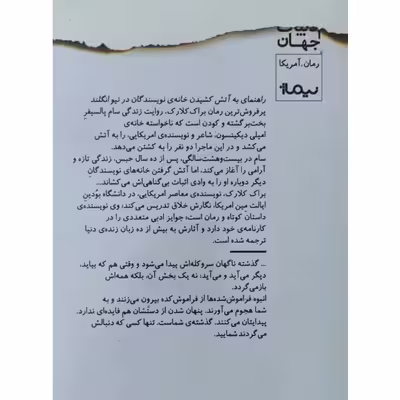 ادبیات
جهان
رمان.آمریکا
نیماژ
راهنمای به آتش کشیدن خانه‌ی نویسندگان در نیوانگلند
پرفروش‌ترین رمان براک کلارک، روایت زندگی سام پالسیفرِ
بخت‌برگشته و کودن است که ناخواسته خانه‌ی
امیلی دیکینسون، شاعر و نویسنده‌ی امریکایی، را به آتش
می‌کشد و در این ماجرا دو نفر را به کشتن می‌دهد.
سام در بیست‌وهشت‌سالگی، پس از ده سال حبس، زندگی تازه و
آرامی را آغاز می‌کند، اما آتش گرفتن خانه‌های نویسندگانِ
دیگر دوباره او را به وادی اثبات بی‌گناهی‌اش می‌کشاند...
براک کلارک، نویسنده‌ی معاصر امریکایی، در دانشگاه بودین
ایالت مین امریکا، نگارش خلاق تدریس می‌کند؛ وی نویسنده‌ی
داستان کوتاه و رمان است؛ جوایز ادبی متعددی را در
کارنامه‌ی خود دارد و آثارش به بیش از ده زبان زنده‌ی دنیا
ترجمه شده است.
... گذشته ناگهان سروکله‌اش پیدا می‌شود و وقتی هم که بیاید،
دیگر می‌آید و می‌آید؛ نه یک بخش آن، بلکه همه‌اش
بازمی‌گردد.
انبوه فراموش‌شده‌ها از فراموش‌کده بیرون می‌زنند و به
شما هجوم می‌آورند. پنهان شدن از دستشان هم فایده‌ای ندارد.
پیدایتان می‌کنند. گذشته‌ی شماست. تنها کسی که دنبالش
می‌گردند شمایید.